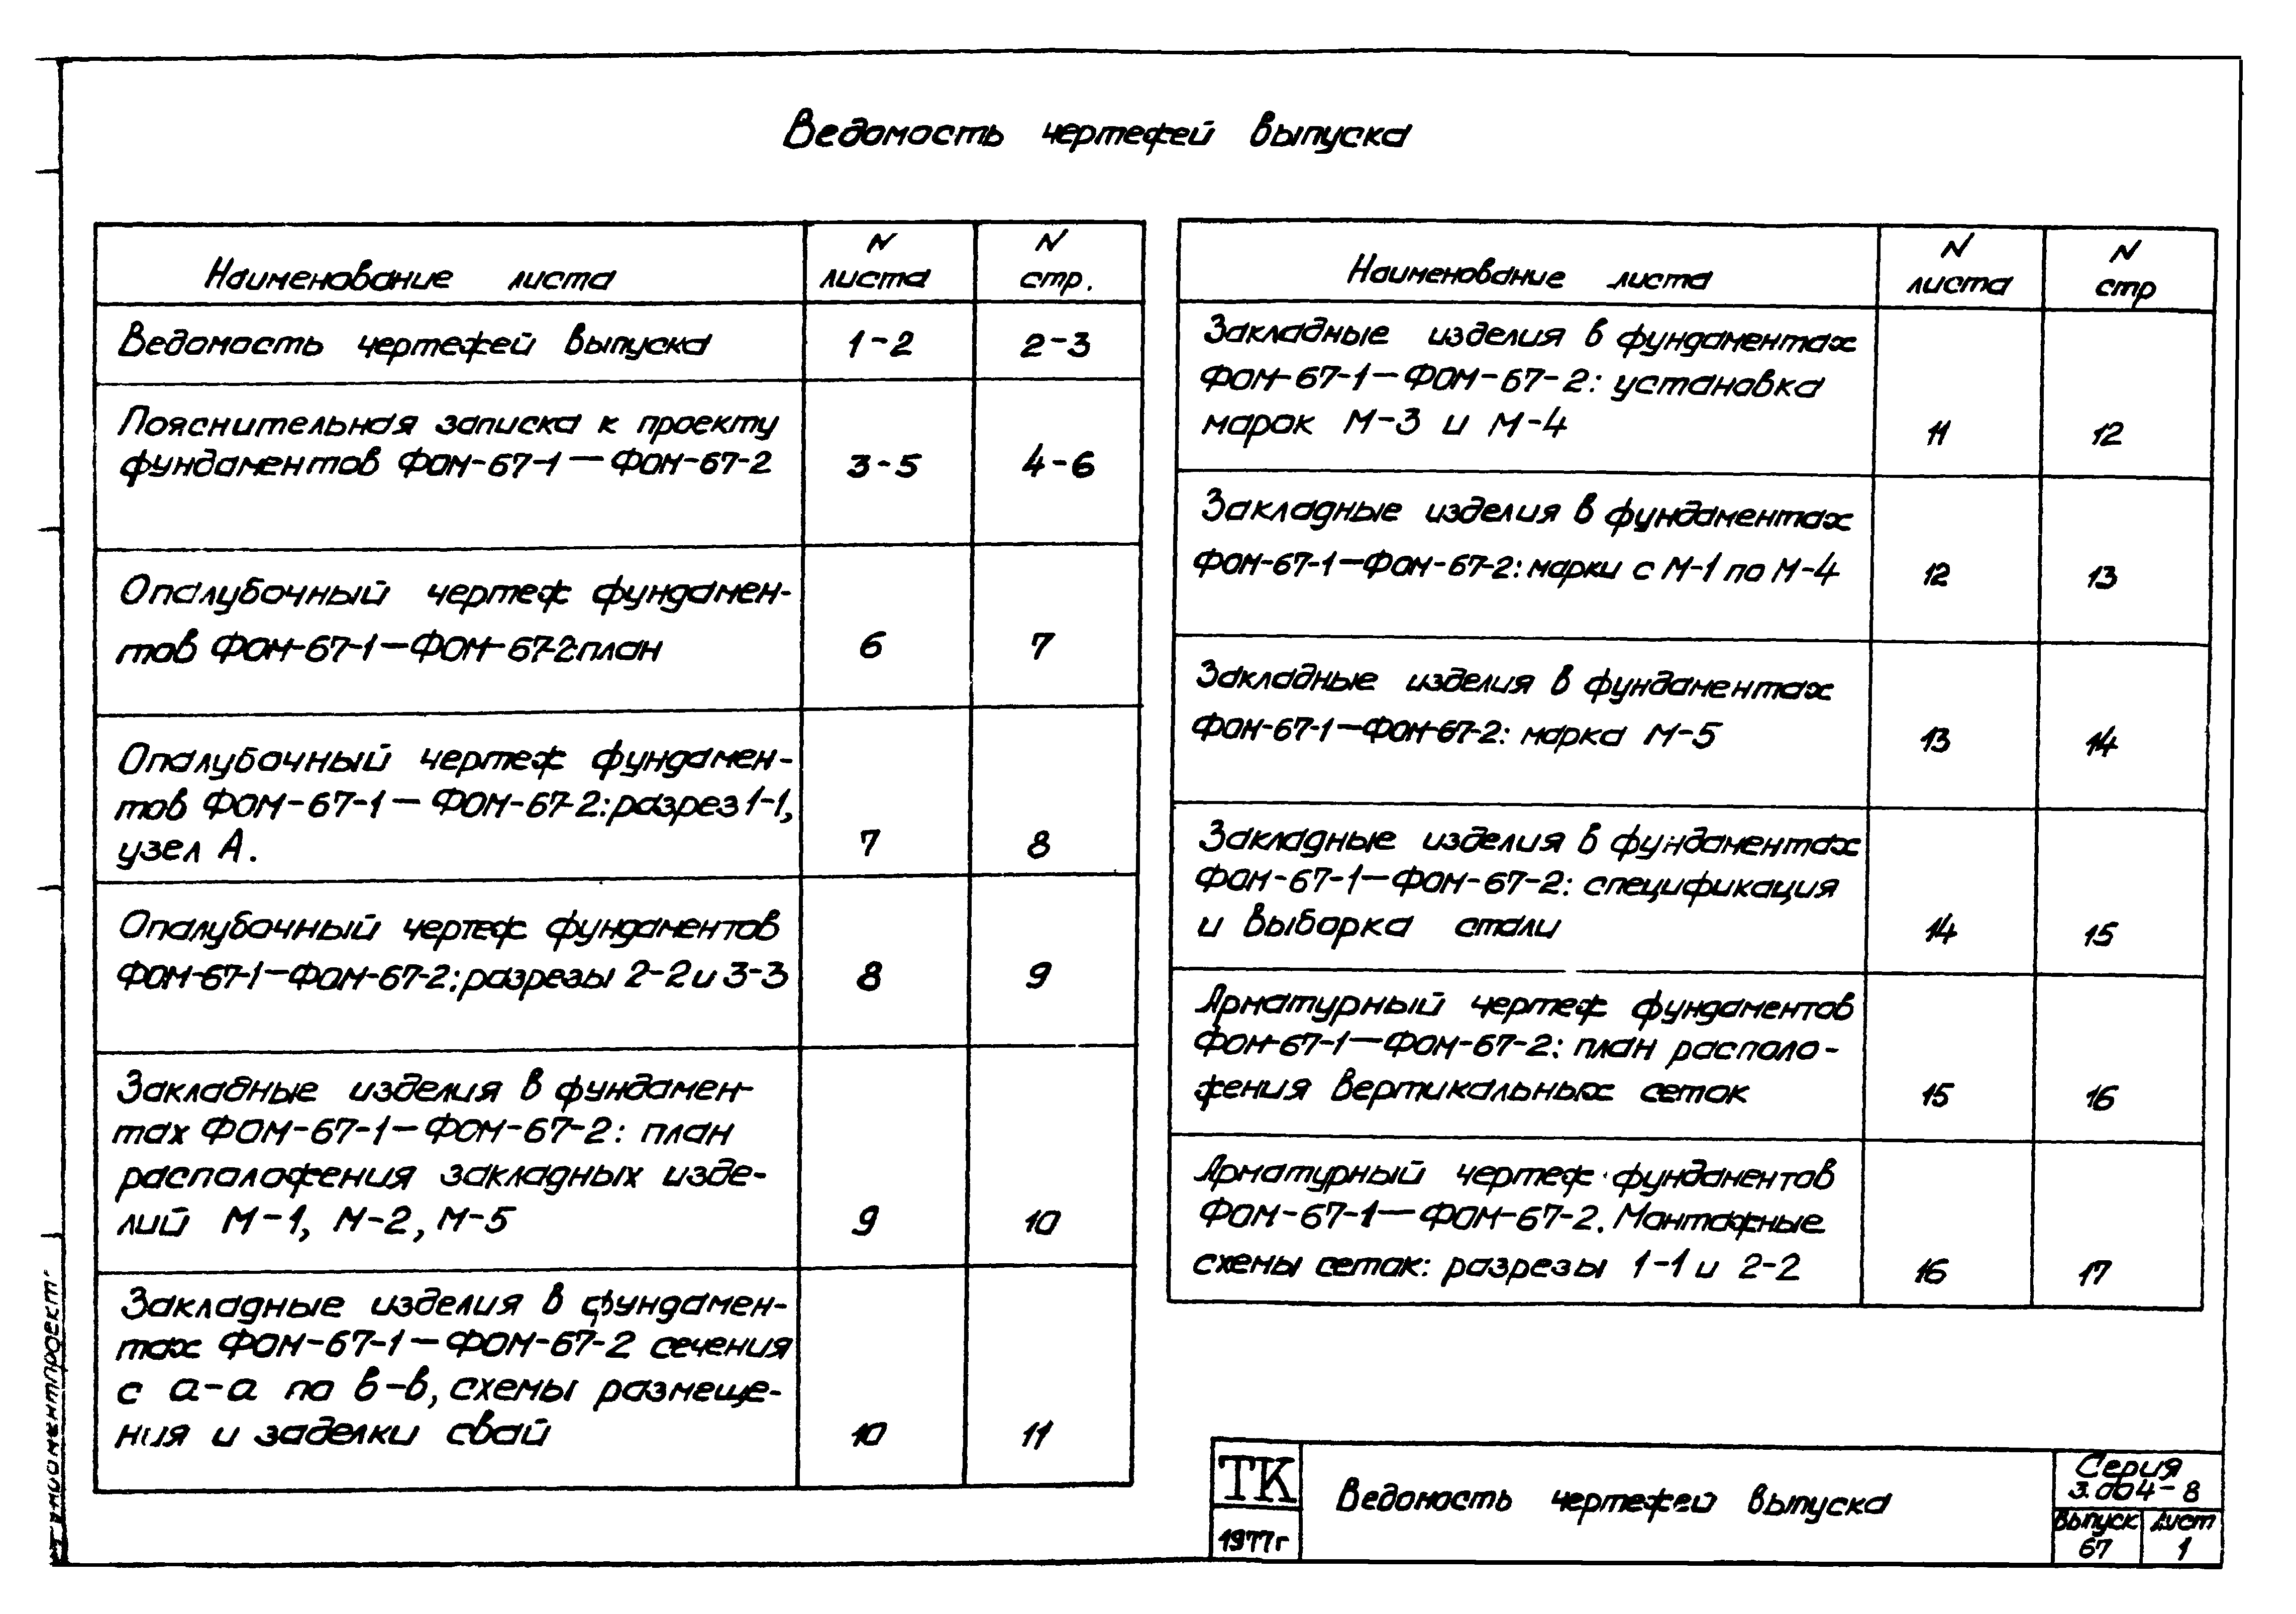 Ведомость чертежей выпуска
Наименование листа
N листа
N стр.
Ведомость чертежей выпуска
1-2
2-3
Пояснительная записка к проекту
фундаментов ФОМ-67-1 — ФОМ-67-2
3-5
4-6
Опалубочный чертеж фундамен-
тов ФОМ-67-1—ФОМ-67-2:план
6
7
Опалубочный чертеж фундамен-
тов ФОМ-67-1 — ФОМ-67-2: разрез 1-1,
узел А.
7
8
Опалубочный чертеж фундаментов
ФОМ-67-1—ФОМ-67-2: разрезы 2-2 и 3-3
8
9
Закладные изделия в фундамен-
тах ФОМ-67-1—ФОМ-67-2: план
расположения закладных изде-
лий М-1, М-2, М-5
9
10
Закладные изделия в фундамен-
тах ФОМ-67-1—ФОМ-67-2 сечения
с а-а по в-в, схемы размеще-
ния и заделки свай
10
11
Наименование листа
N листа
N стр
Закладные изделия в фундаментах
ФОМ-67-1—ФОМ-67-2: установка
марок М-3 и М-4
11
12
Закладные изделия в фундаментах
ФОМ-67-1—ФОМ-67-2: марки с М-1 по М-4
12
13
Закладные изделия в фундаментах
ФОМ-67-1—ФОМ-67-2: марка М-5
13
14
Закладные изделия в фундаментах
ФОМ-67-1—ФОМ-67-2: спецификация
и выборка стали
14
15
Арматурный чертеж фундаментов
ФОМ-67-1—ФОМ-67-2: план располо-
жения вертикальных сеток
15
16
Арматурный чертеж фундаментов
ФОМ-67-1—ФОМ-67-2. Монтажные
схемы сеток: разрезы 1-1 и 2-2
16
17
ТК
1977г
Ведомость чертежей выпуска
Серия
3.004-8
Выпуск
67
Лист
1